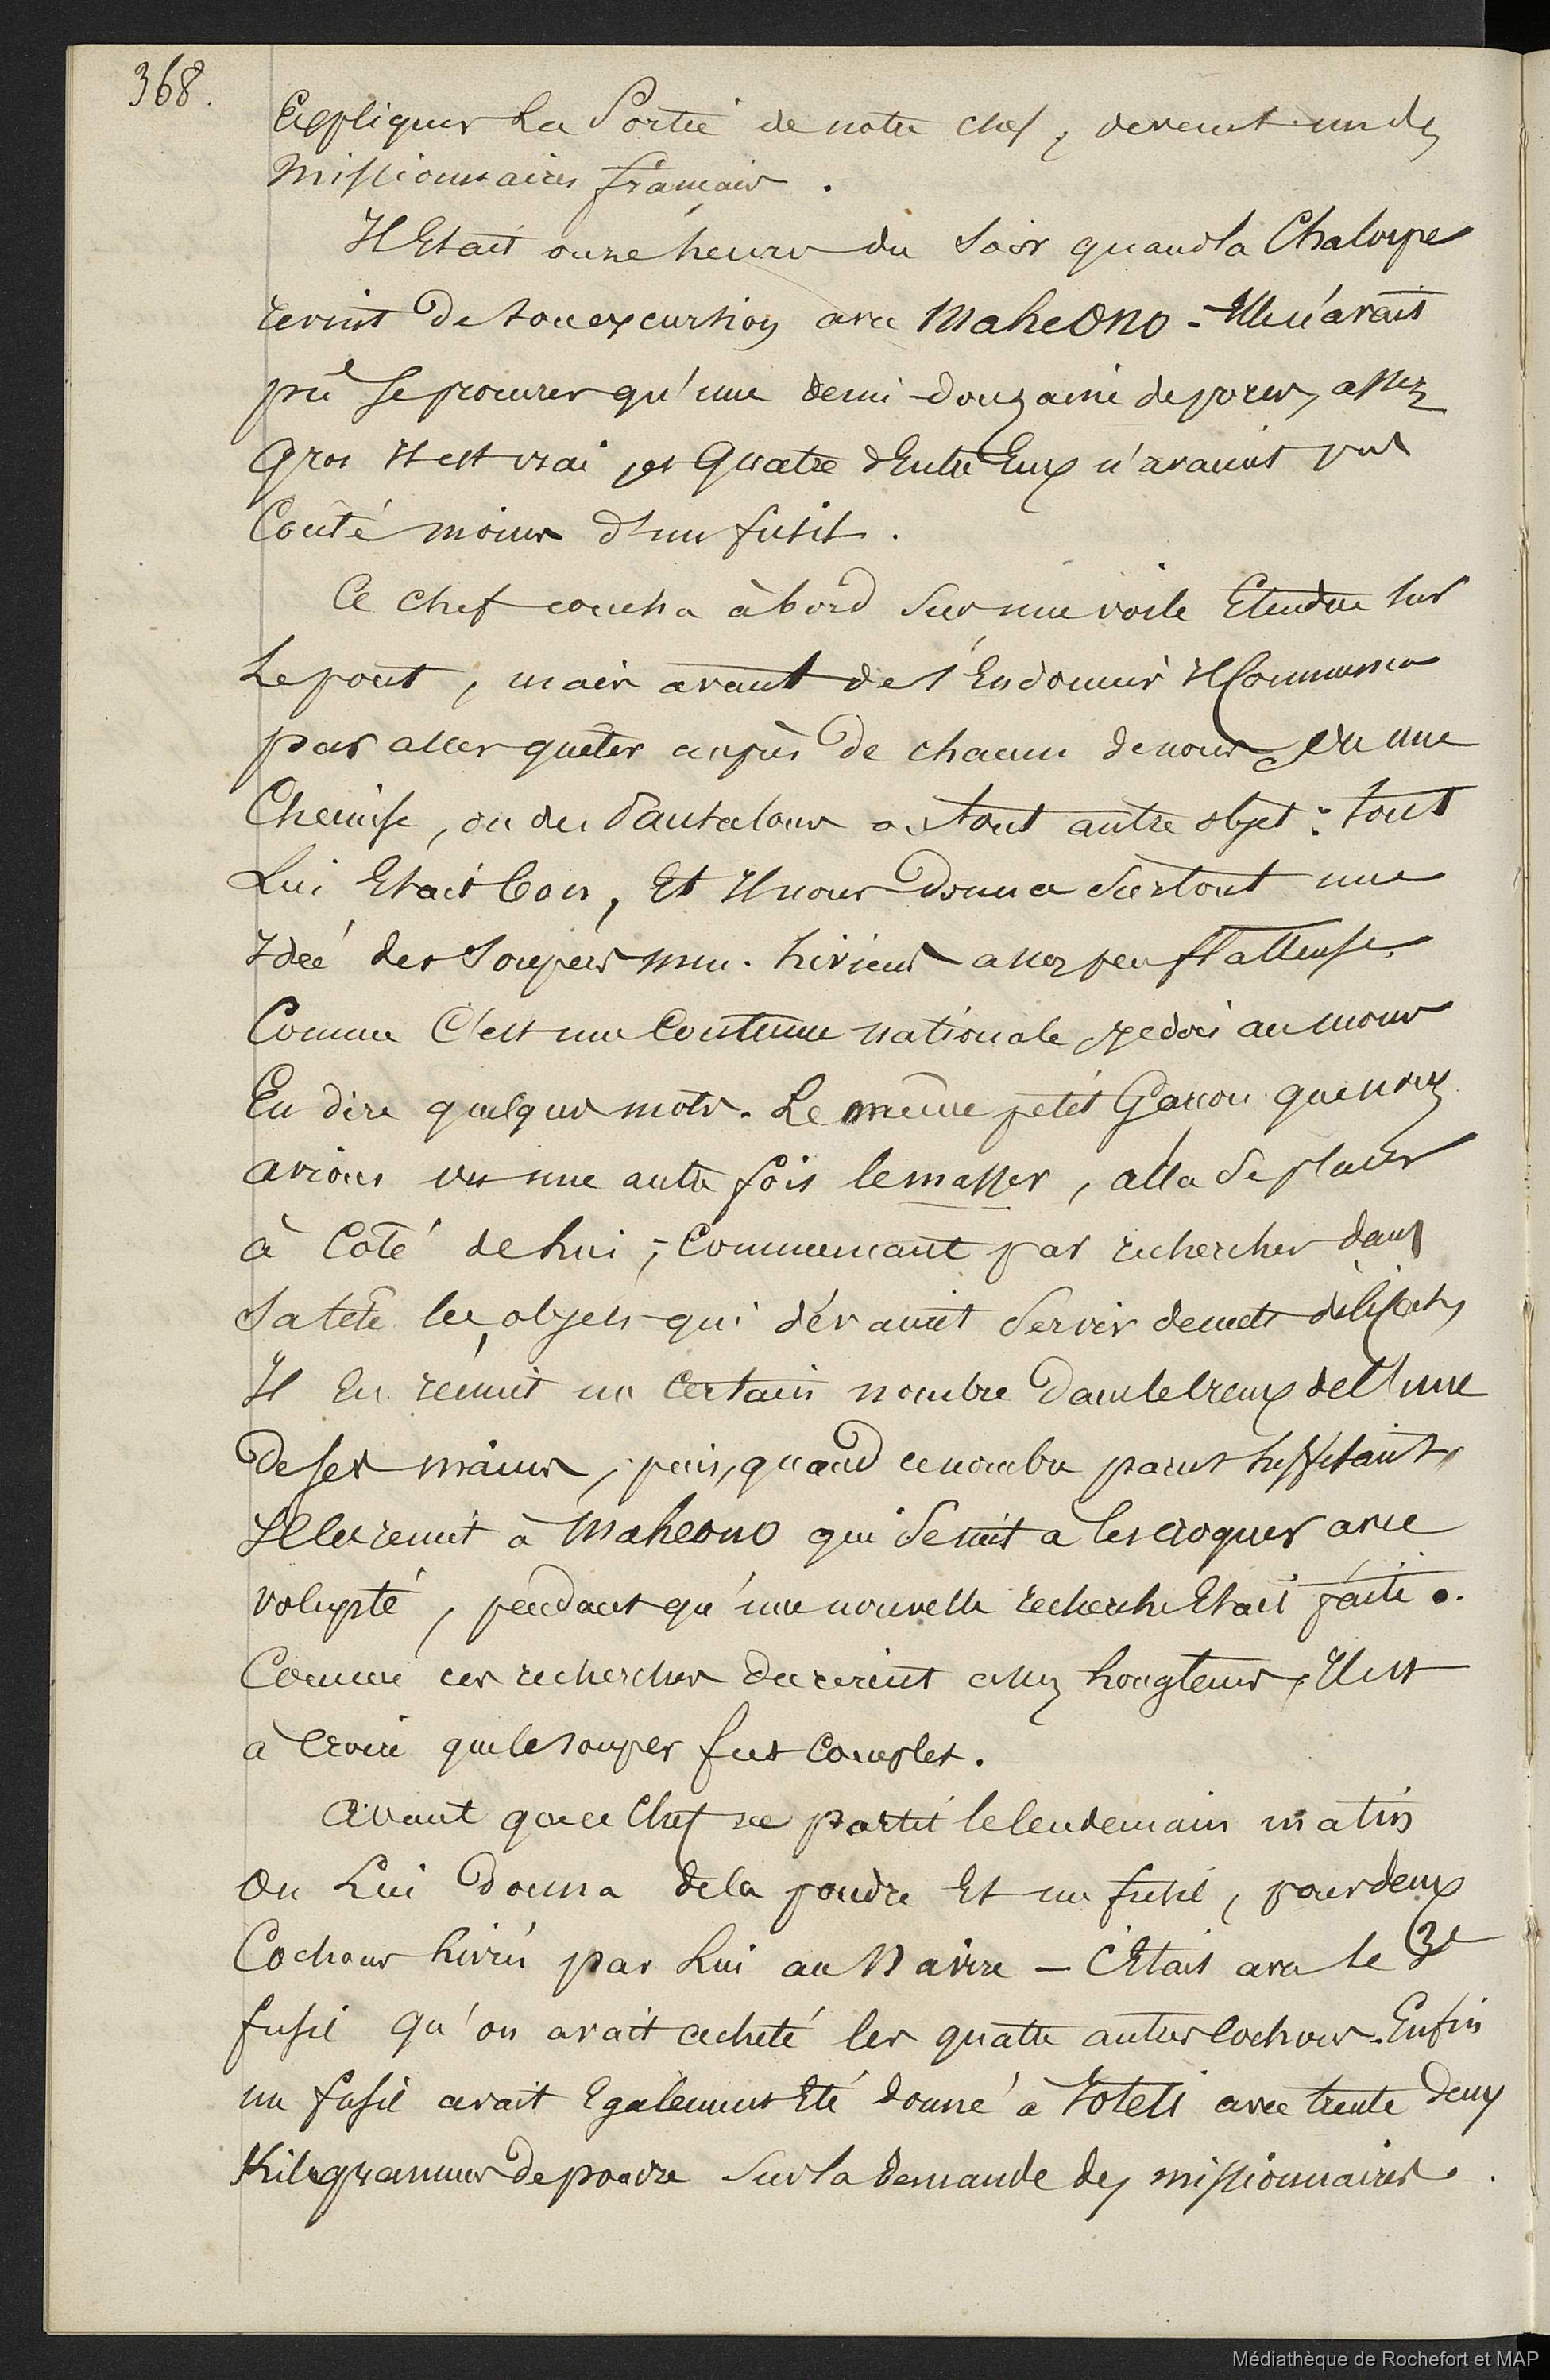 368.
Expliquer La Sortie de notre chef, devant un des
Missionnaires français.
Il Etait onze heures du Soir quand la Chaloupe
revint de son excursion avec Maheono - Elle n'avait
pû Se procurer qu'une demi-douzaine de porcs, assez
Gros Il est vrai, et Quatre d'Entre Eux n'avaient pas
Coûté moins d'un fusil.
Ce chef coucha à bord Sur une voile Etendue Sur
Le pont, mais avant de s'Endormir Il Commença
par aller quêter auprès de chacun de nous ou une
Chemise, ou des Pantalons ou tout autre objet: tout
Lui Etait bon, Et Il nous donna Surtout une
Idée des Soupers assez peu flatteuse.
Comme C'est une Coutume nationale, je dois au moins
En dire quelques mots. Le même petit Garçon que nous
avions vu une autre fois le masser, alla Se placer
à Côté de Lui; Commençant par rechercher dans
Sa tête les objets qui dévaient Servir de mets délicats
Il En réunit un Certain nombre dans le creux de l'une
de Ses mains, puis, quand ce nombre parut Suffisant,
Il les remit à Maheono qui Se mit à les croquer avec
volupté, pendant qu'une nouvelle recherche Etait faite.
Comme ces recherches durèrent assez Longtems, Il est
à Croire que le souper fut Complet.
Avant que ce Chef ne partit le lendemain matin
On Lui donna de la poudre Et un fusil, pour deux
Cochons Livrés par Lui au Navire - C'Etait avec le 3e
fusil qu'on avait acheté les quatre autres Cochons. Enfin
un fusil avait Egalement Eté donné à Yoteti avec trente deux
Kilogrammes de poudre Sur la demande des missionnaires.
Médiathèque de Rochefort et MAP